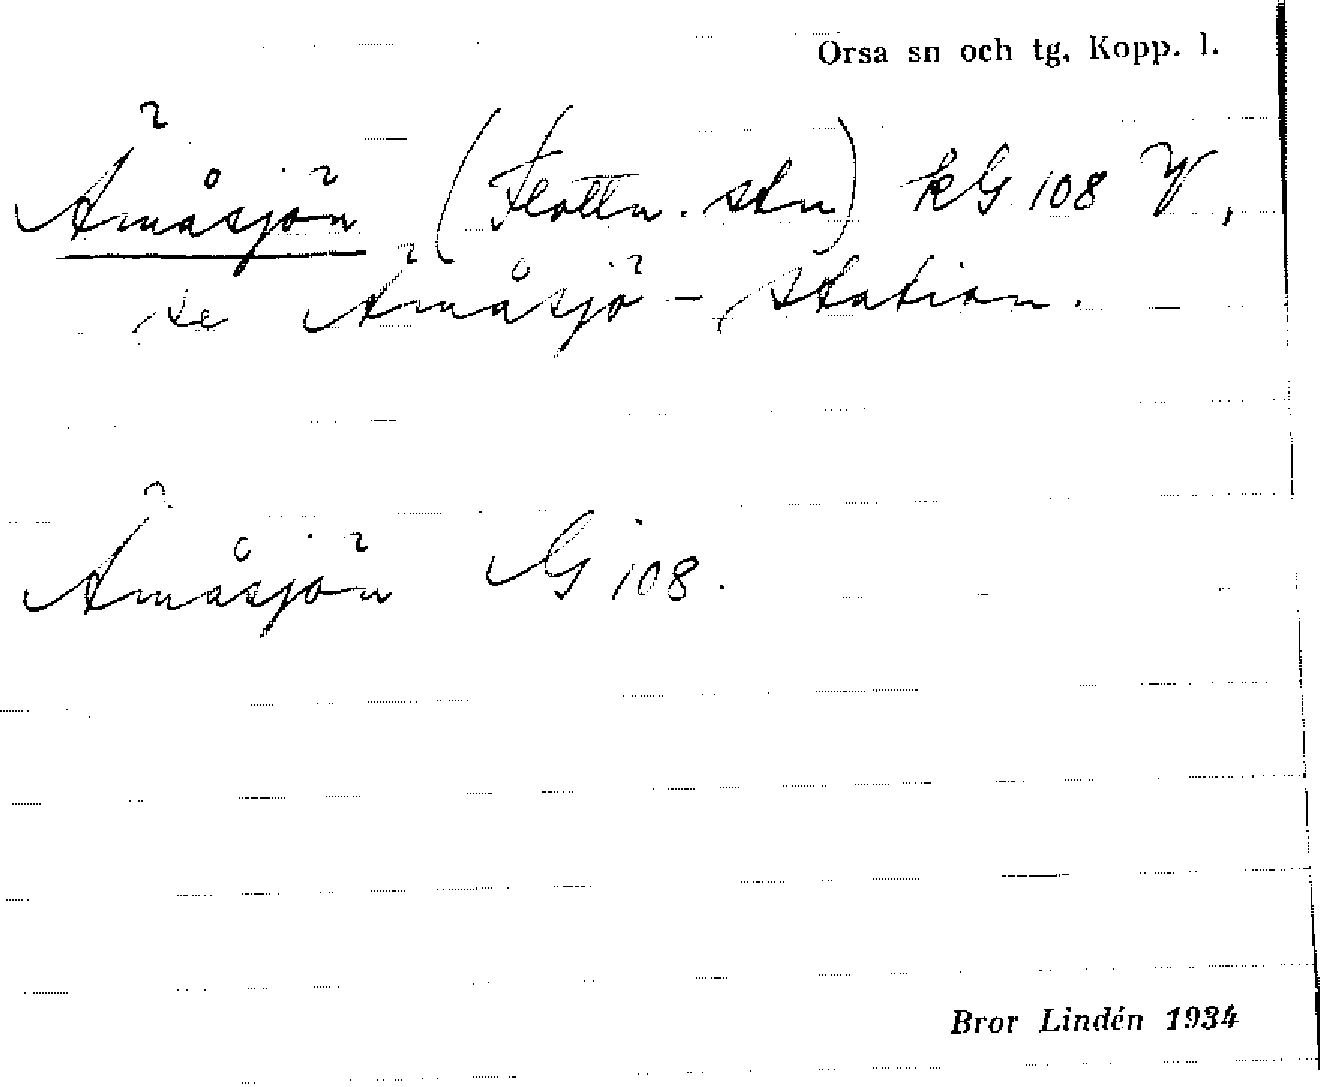 Orsa sn och tg, Kopp. l.
Ämåsjön (Flottn. stn) kG 108 V,
se Ämåsjö-station.
Ämåsjön G 108.
Bror Lindén 1934